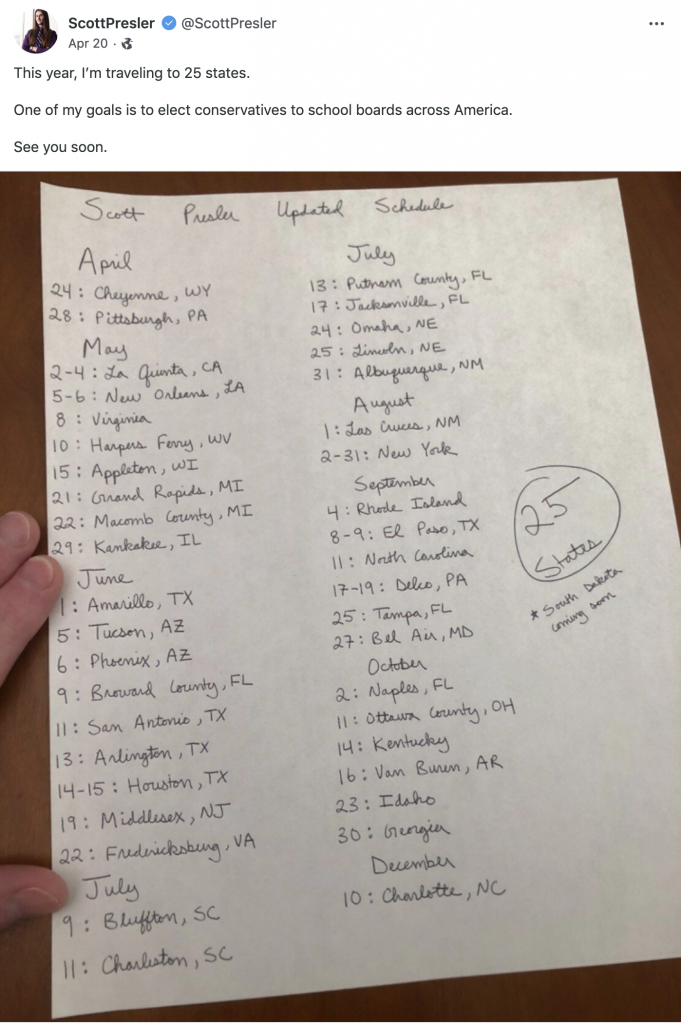 ScottPresler @ScottPresler
Apr 20 ·
This year, I'm traveling to 25 states.
One of my goals is to elect conservatives to school boards across America.
See you soon.
Scott Presler Updated Schedule
April
24: Cheyenne, WY
28: Pittsburgh, PA
May
2-4: La Quinta, CA
5-6: New Orleans, LA
8: Virginia
10: Harpers Ferry, WV
15: Appleton, WI
21: Grand Rapids, MI
22: Macomb County, MI
29: Kankakee, IL
June
1: Amarillo, TX
5: Tucson, AZ
6: Phoenix, AZ
9: Broward County, FL
11: San Antonio, TX
13: Arlington, TX
14-15: Houston, TX
19: Middlesex, NJ
22: Fredericksburg, VA
July
9: Bluffton, SC
11: Charleston, SC
July
13: Putnam County, FL
17: Jacksonville, FL
24: Omaha, NE
25: Lincoln, NE
31: Albuquerque, NM
August
1: Las Cruces, NM
2-31: New York
September
4: Rhode Island
8-9: El Paso, TX
11: North Carolina
17-19: Delco, PA
25: Tampa, FL
27: Bel Air, MD
October
2: Naples, FL
11: Ottawa County, OH
14: Kentucky
16: Van Buren, AR
23: Idaho
30: Georgia
December
10: Charlotte, NC
25
States
* South Dakota
coming soon